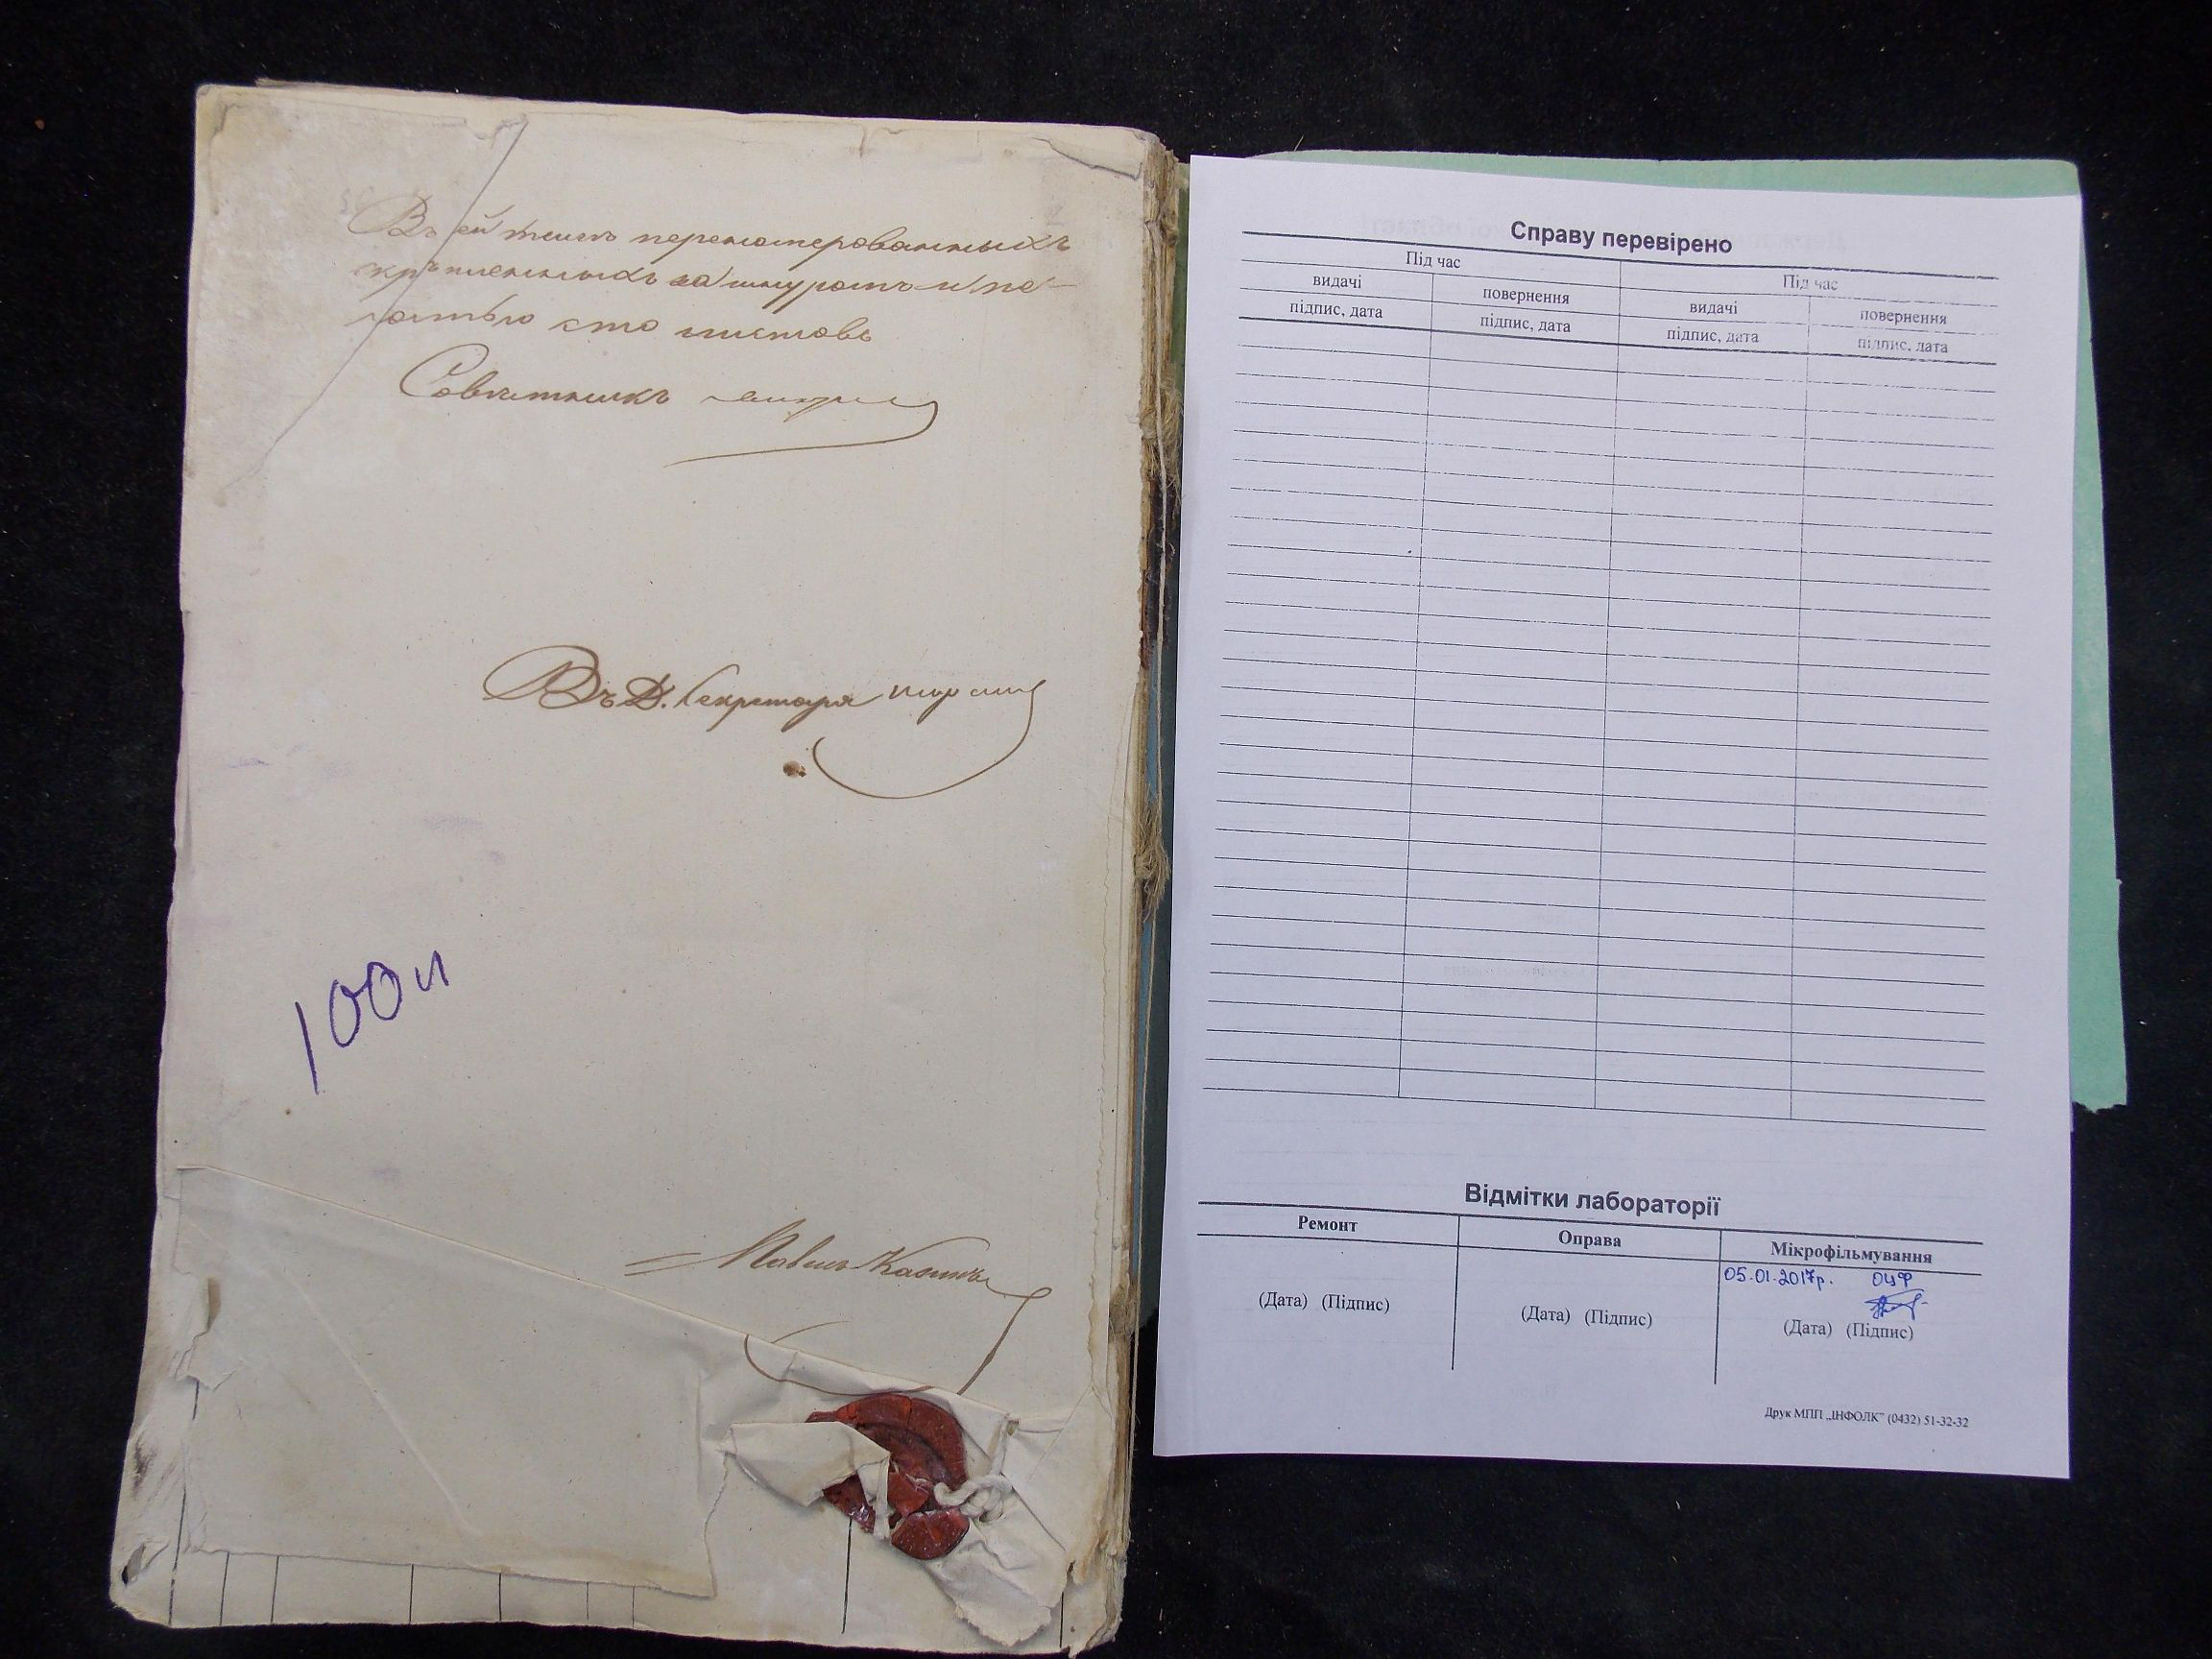 Въ сей книгѣ перенумерованныхъ
скрѣпленныхъ за шнуромъ и пе-
чатью сто листовъ
Совѣтникъ
Въ Д. Секретаря
100 л
Справу перевірено
Під час Під час
видачі повернення видачі повернення
підпис, дата підпис, дата підпис, дата підпис, дата
Відмітки лабораторії
Ремонт Оправа Мікрофільмування
05.01.2017р. ОЦФ
(Дата) (Підпис) (Дата) (Підпис) (Дата) (Підпис)
Друк МПП „ІНФОЛК" (0432) 51-32-32